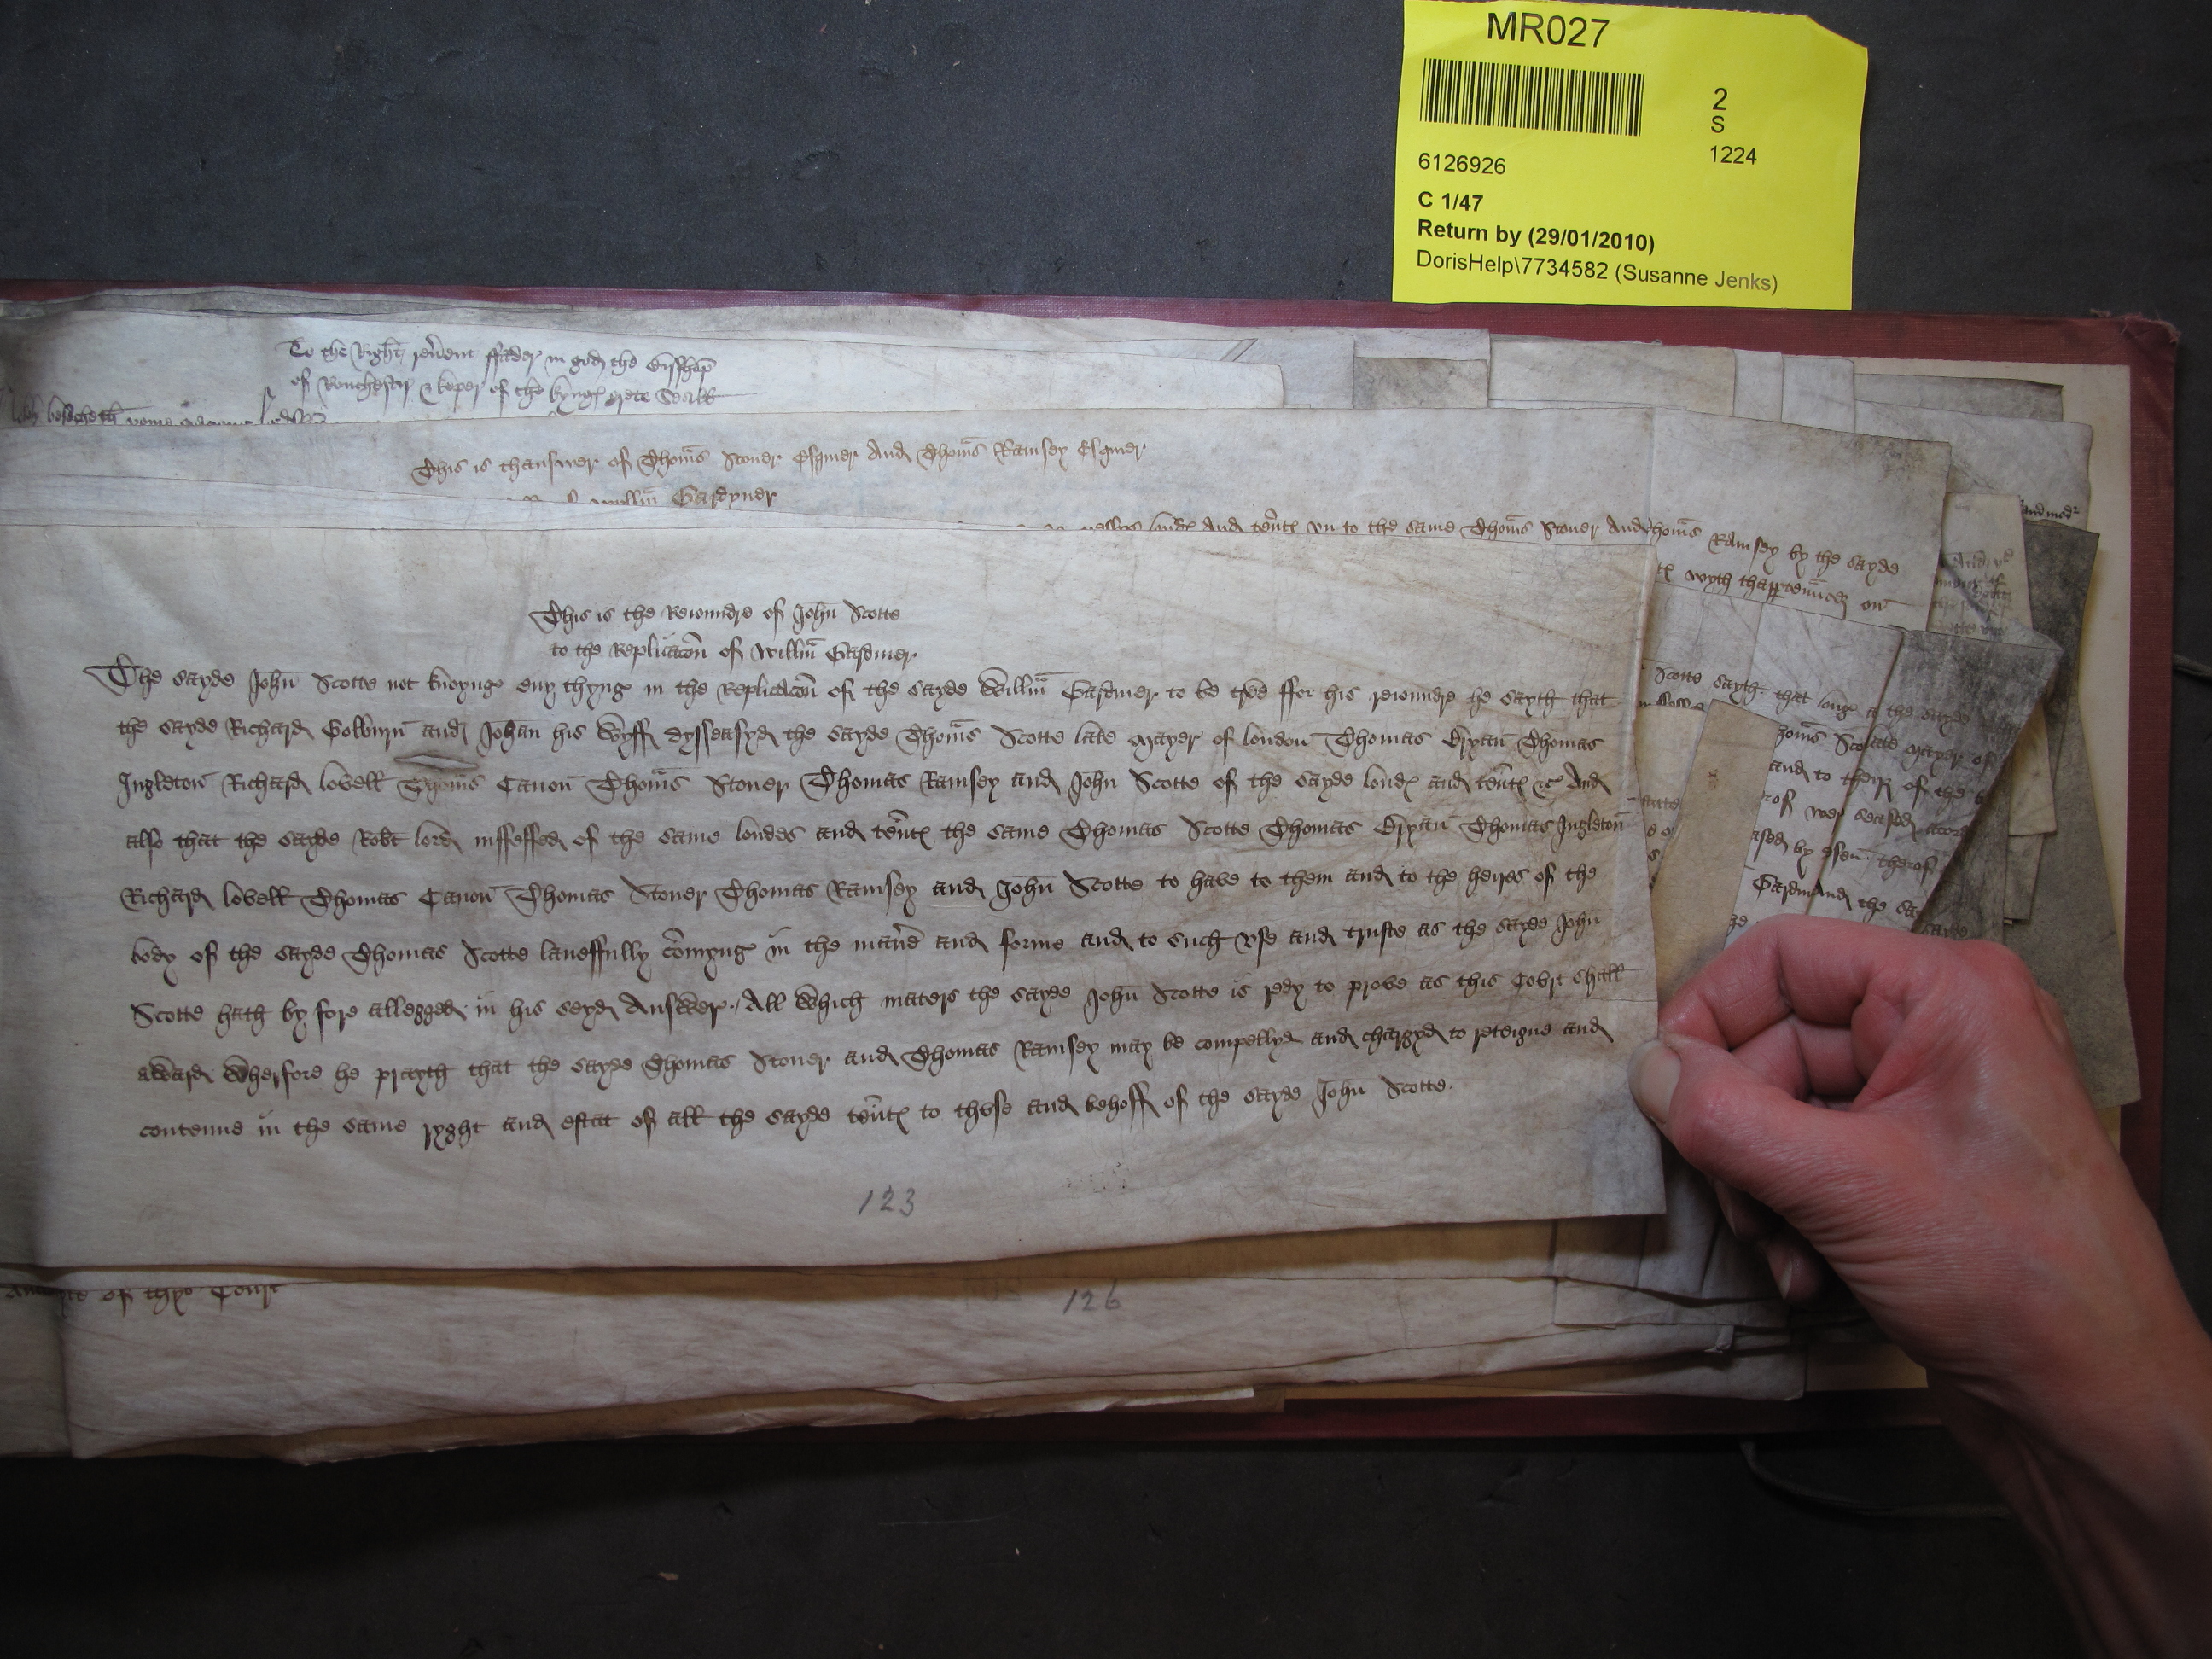 MR027
2
S
1224
6126926
C 1/47
Return by (29/01/2010)
DorisHelp\7734582 (Susanne Jenks)
To the Right reu̅ent ffader in god the Bisshop̅
of Rouchestr & keper of the kyngℯ grete Seall
This is thanswer of Thom̅s Stoner Esquier And Thom̅s Ramsey Esquier
Willm̅ Gardyner
londℯ And ten̅tℯ vn to the same Thom̅s Stoner And Thom̅s Ramsey by the sayde
wyth
This is the Reioundre of John̅ Scotte
to the Replicacõn of Willm̅ Gardiner
The sayde John̅ Scotte not knoyng eny thyng in the Replicacõn of the sayde Willm̅ Gardiner to be trve ffor his reioundre he sayth that
the sayde Richard Golburn̅ and Johan̅ his Wyff dysseasyd the sayde Thom̅s Scotte late Mayer of london̅ Thomas Bryan̅ Thomas
Ingleton̅ Richard lovell Thom̅s Canon̅ Thom̅s Stoner Thomas Ramsey and John̅ Scotte of the sayde londℯ and ten̅tℯ &c And
also that the sayde Rob̅t lord inffeffed of the same londes and ten̅tℯ the same Thomas Scotte Thomas Bryan̅ Thomas Ingleton̅
Richard lovell Thomas Canon̅ Thomas Stoner Thomas Ramsey and John̅ Scotte to have to them and to the heires of the
body of the sayde Thomas Scotte laueffully co̅myng in the man̅e and forme and to such vse and truste as the sayde John̅
Scotte hath by fore allegged in his seyd Answer / All Which maters the sayde John̅ Scotte is redy to prove as this Covrt shall
aWard Wherfore he prayth that the sayde Thomas Stoner and Thomas Ramsey may be compellyd and chargyd to reteigne and
contenue in the same ryght and estat of all the sayde ten̅tℯ to thvse and behoff of the sayde John̅ Scotte
123
Scotte sayth that long
the sayde
Mayer of
and to their of the
therof
and the
of thys Court
126